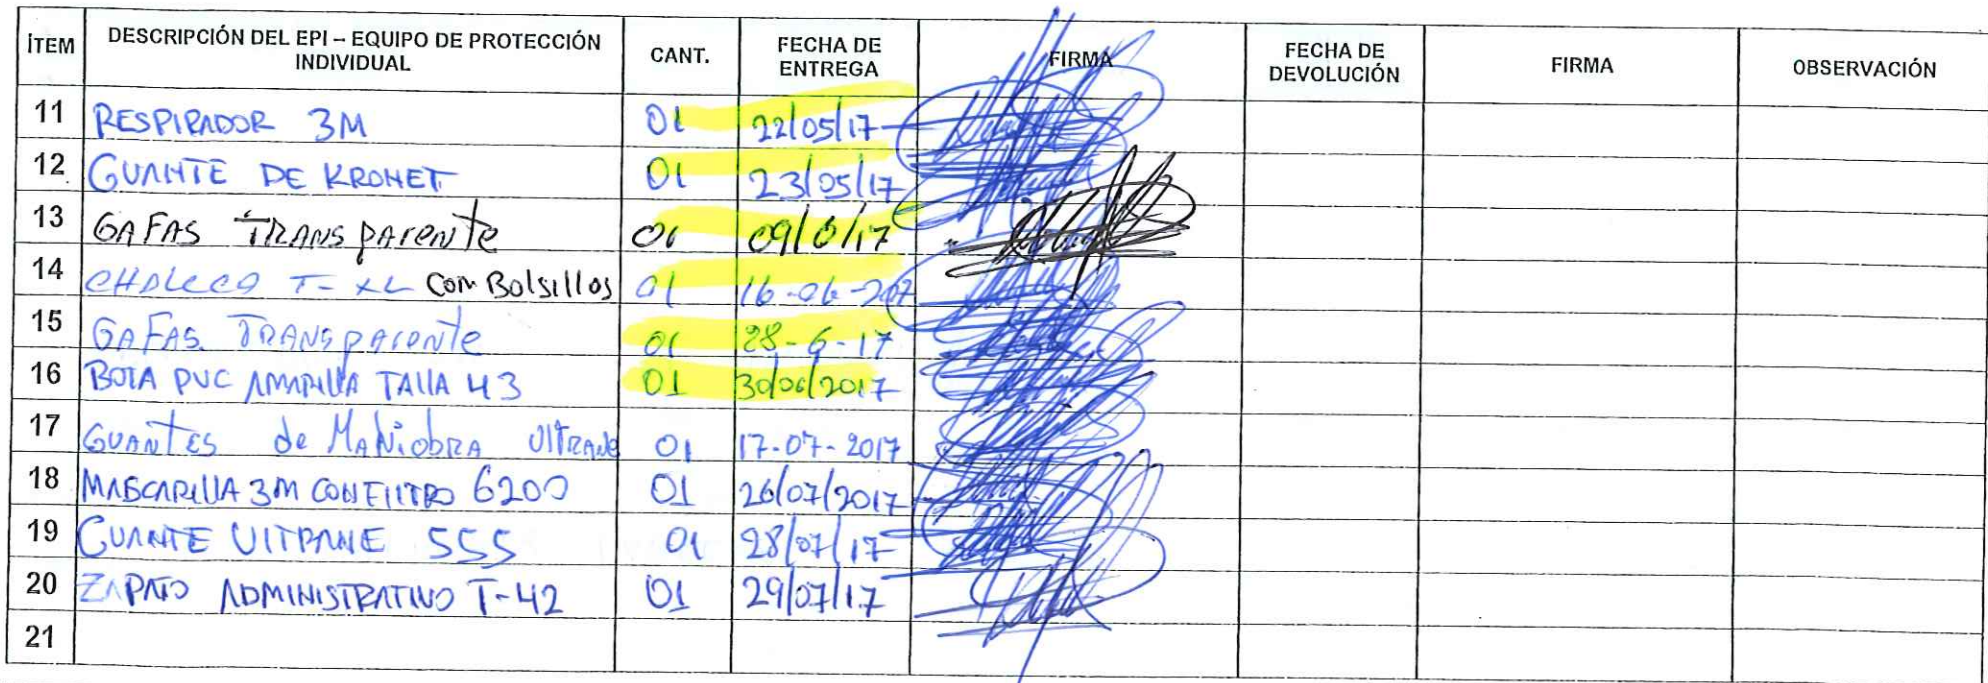 ÍTEM DESCRIPCIÓN DEL EPI – EQUIPO DE PROTECCIÓN INDIVIDUAL CANT. FECHA DE ENTREGA FIRMA FECHA DE DEVOLUCIÓN FIRMA OBSERVACIÓN
11 RESPIRADOR 3M 01 22/05/17
12 GUANTE DE KRONET 01 23/05/17
13 GAFAS TRANSPARENTE 01 09/6/17
14 CHALECO T-XL CON Bolsillos 01 16-06-2017
15 GAFAS. TRANSPARENTE 01 28-6-17
16 BOTA PVC AMARILLA TALLA 43 01 30/06/2017
17 GUANTES de MANIOBRA 01 17-07-2017
18 MASCARILLA 3M CON FILTRO 6200 01 26/07/2017
19 GUANTE VITRANE 555 01 28/07/17
20 ZAPATO ADMINISTRATIVO T-42 01 29/07/17
21